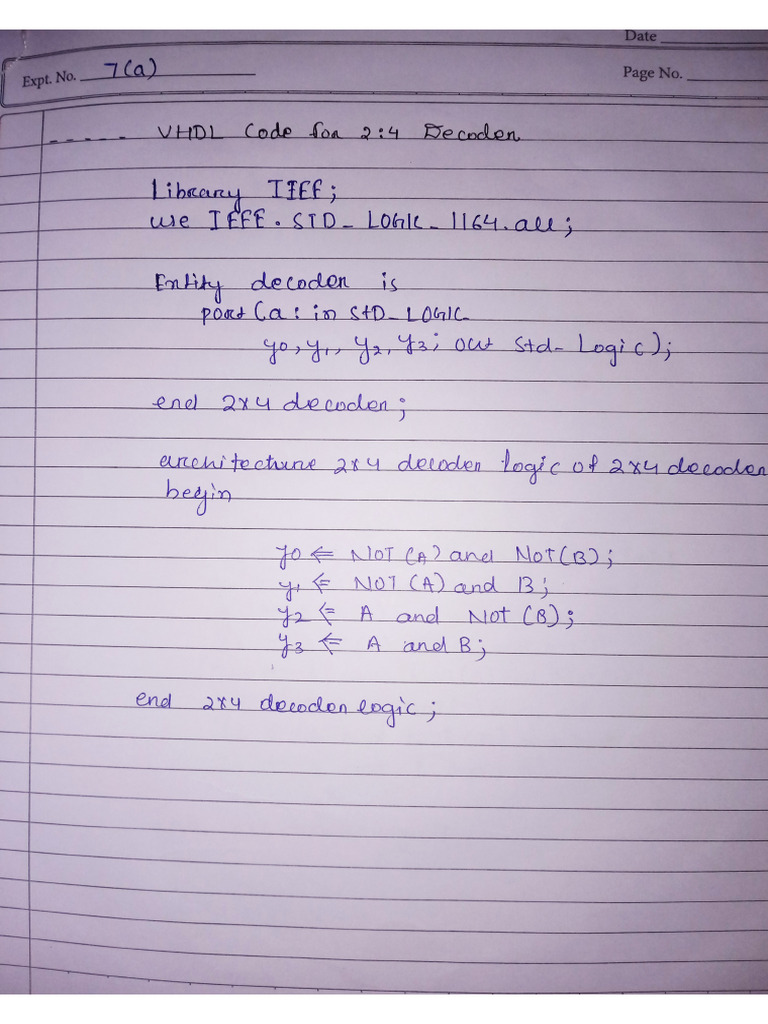 Date
Expt. No. 7(a)
Page No.
----- VHDL Code for 2:4 Decoder
Library IEEE;
use IEEE.STD_LOGIC_1164.all;
Entity decoder is
port (a: in STD_LOGIC
y0, y1, y2, y3; out Std_Logic);
end 2x4 decoder;
architecture 2x4 decoder logic of 2x4 decoder
begin
y0 <= NOT (A) and NOT (B);
y1 <= NOT (A) and B;
y2 <= A and NOT (B);
y3 <= A and B;
end 2x4 decoder logic;